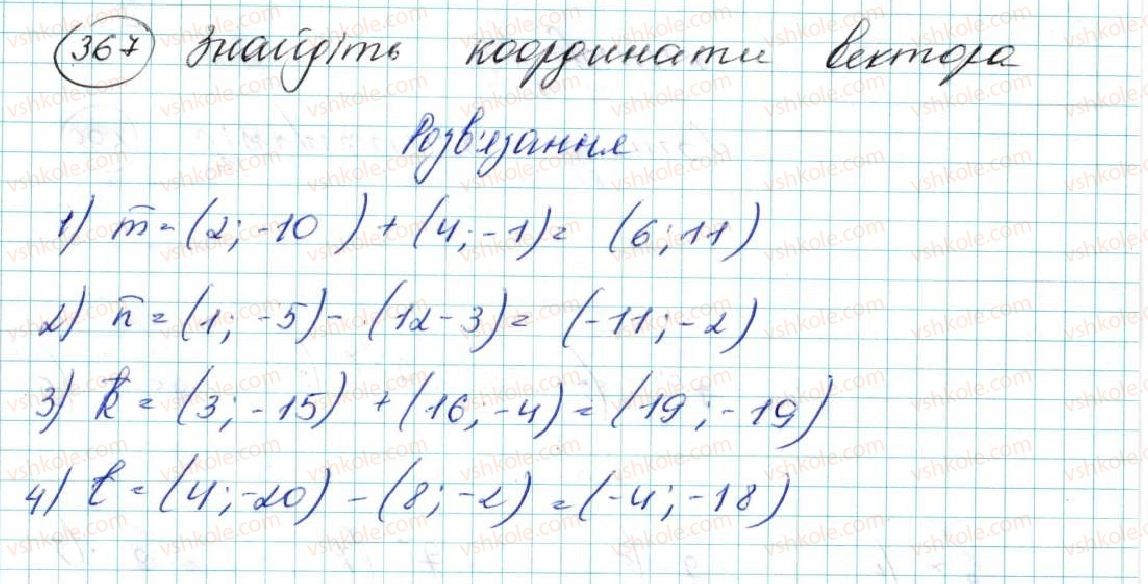 367 Знайдіть координати вектора
Розв'язання
1) m̄ = (2; -10) + (4; -1) = (6; 11)
2) n̄ = (1; -5) - (12 - 3) = (-11; -2)
3) k̄ = (3; -15) + (16; -4) = (19; -19)
4) ℓ̄ = (4; -20) - (8; -2) = (-4; -18)